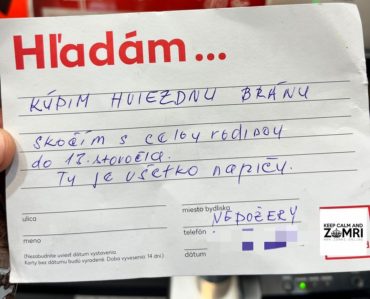 Hľadám...
KÚPIM HVIEZDNU BRÁNU
skočím s celou rodinou
do 13. storočia.
Tu je všetko napiču.
ulica
miesto bydliska
NEDOŽERY
meno
telefón
(Nezabudnite uviesť dátum vystavenia.
Karty bez dátumu budú vyradené. Doba vyvesenia: 14 dní.)
dátum
KEEP CALM AND
ZOMRI